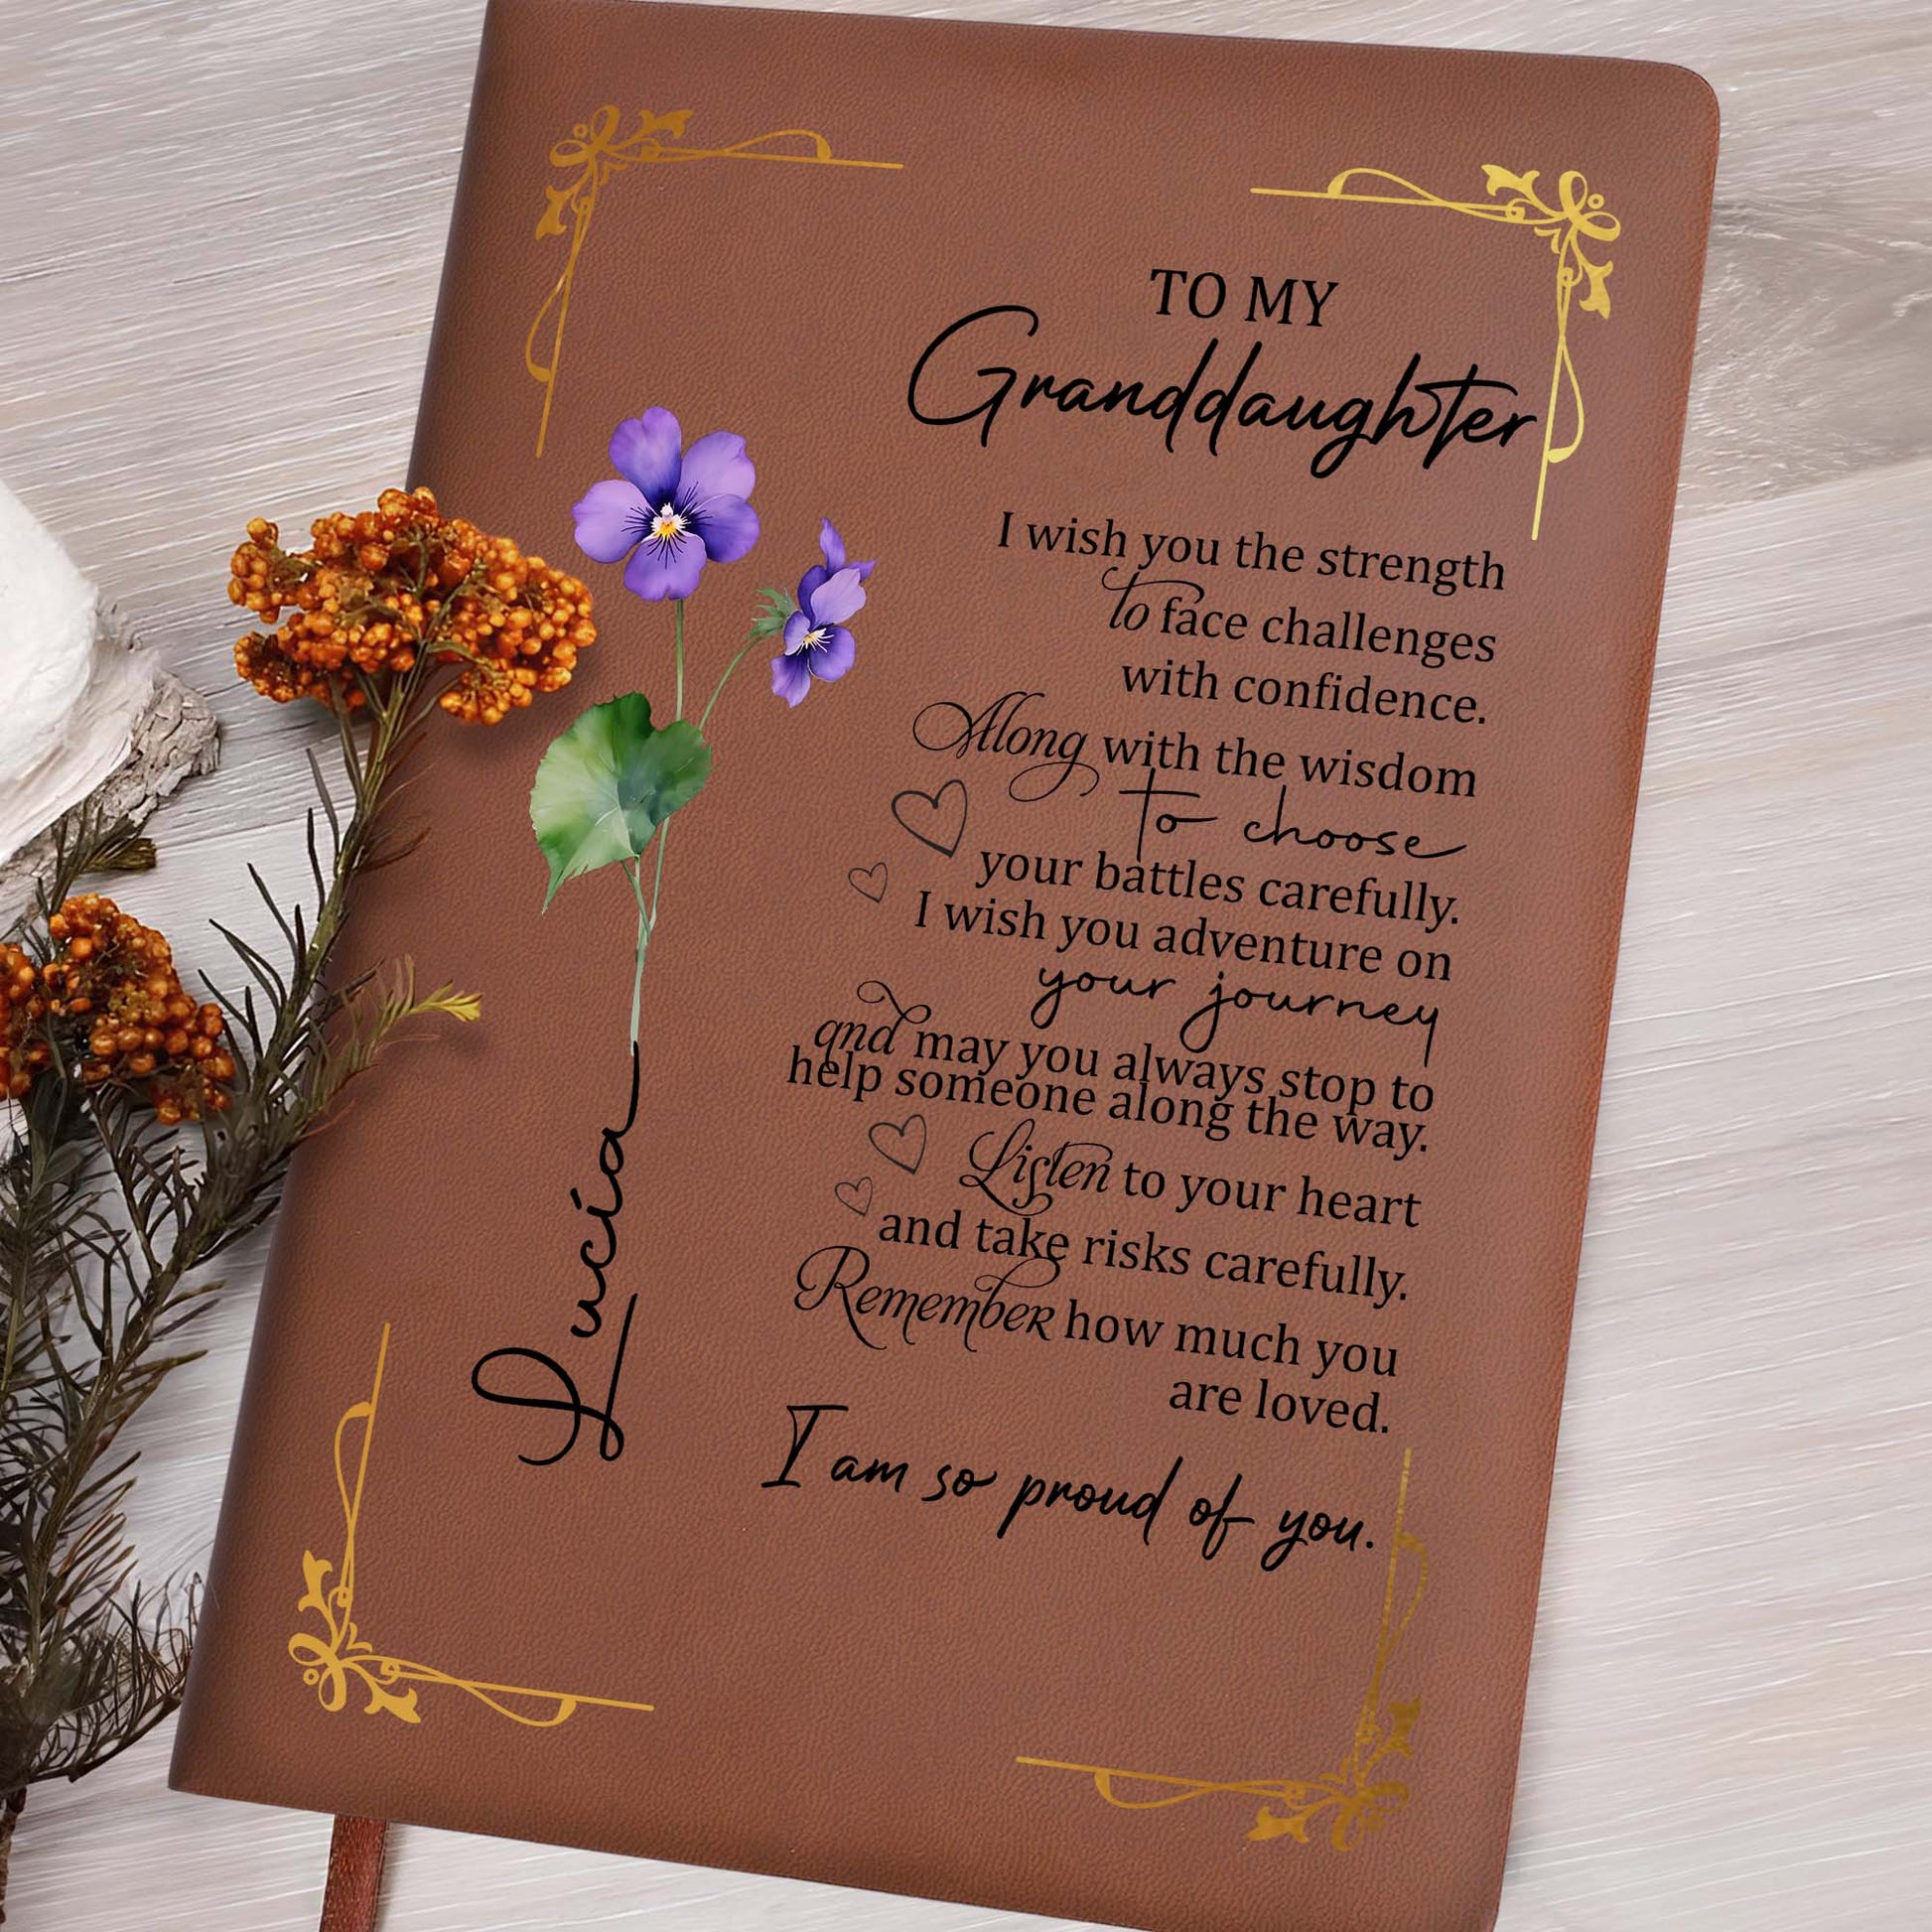 TO MY
Granddaughter
I wish you the strength
to face challenges
with confidence.
Along with the wisdom
to choose
your battles carefully.
I wish you adventure on
your journey
and may you always stop to
help someone along the way.
Listen to your heart
and take risks carefully.
Remember how much you
are loved.
I am so proud of you.
Lucia